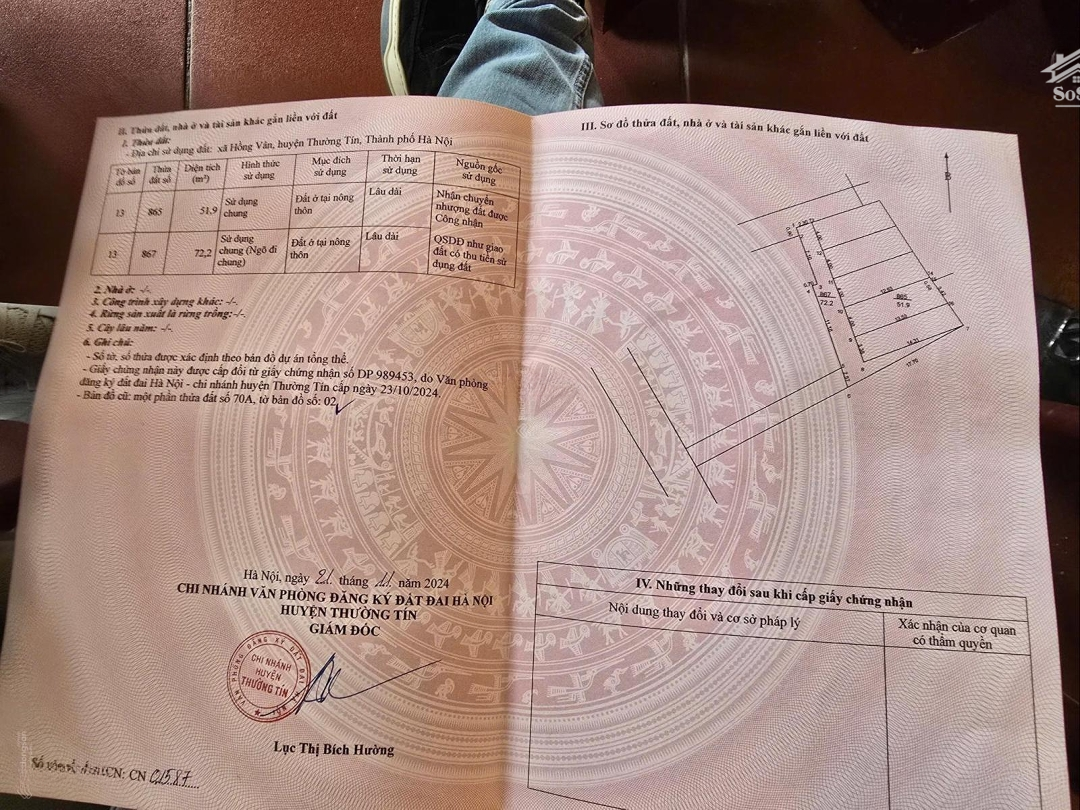 II. Thửa đất, nhà ở và tài sản khác gắn liền với đất
1. Thửa đất:
- Địa chỉ sử dụng đất: xã Hồng Vân, huyện Thường Tín, Thành phố Hà Nội
Tờ bản đồ số | Thửa đất số | Diện tích (m²) | Hình thức sử dụng | Mục đích sử dụng | Thời hạn sử dụng | Nguồn gốc sử dụng
13 | 865 | 51,9 | Sử dụng chung | Đất ở tại nông thôn | Lâu dài | Nhận chuyển nhượng đất được Công nhận
13 | 867 | 72,2 | Sử dụng chung (Ngõ đi chung) | Đất ở tại nông thôn | Lâu dài | QSDĐ như giao đất có thu tiền sử dụng đất
2. Nhà ở: -/-.
3. Công trình xây dựng khác: -/-.
4. Rừng sản xuất là rừng trồng: -/-.
5. Cây lâu năm: -/-.
6. Ghi chú:
- Số tờ, số thửa được xác định theo bản đồ dự án tổng thể.
- Giấy chứng nhận này được cấp đổi từ giấy chứng nhận số DP 989453, do Văn phòng
đăng ký đất đai Hà Nội - chi nhánh huyện Thường Tín cấp ngày 23/10/2024.
- Bản đồ cũ: một phần thửa đất số 70A, tờ bản đồ số: 02
Hà Nội, ngày 21 tháng 11 năm 2024
CHI NHÁNH VĂN PHÒNG ĐĂNG KÝ ĐẤT ĐAI HÀ NỘI
HUYỆN THƯỜNG TÍN
GIÁM ĐỐC
CHI NHÁNH
HUYỆN
THƯỜNG TÍN
Lục Thị Bích Hường
CN: CN 01587
III. Sơ đồ thửa đất, nhà ở và tài sản khác gắn liền với đất
B
867
72.2
865
51.9
12.93
13.53
14.21
17.75
IV. Những thay đổi sau khi cấp giấy chứng nhận
Nội dung thay đổi và cơ sở pháp lý
Xác nhận của cơ quan
có thẩm quyền